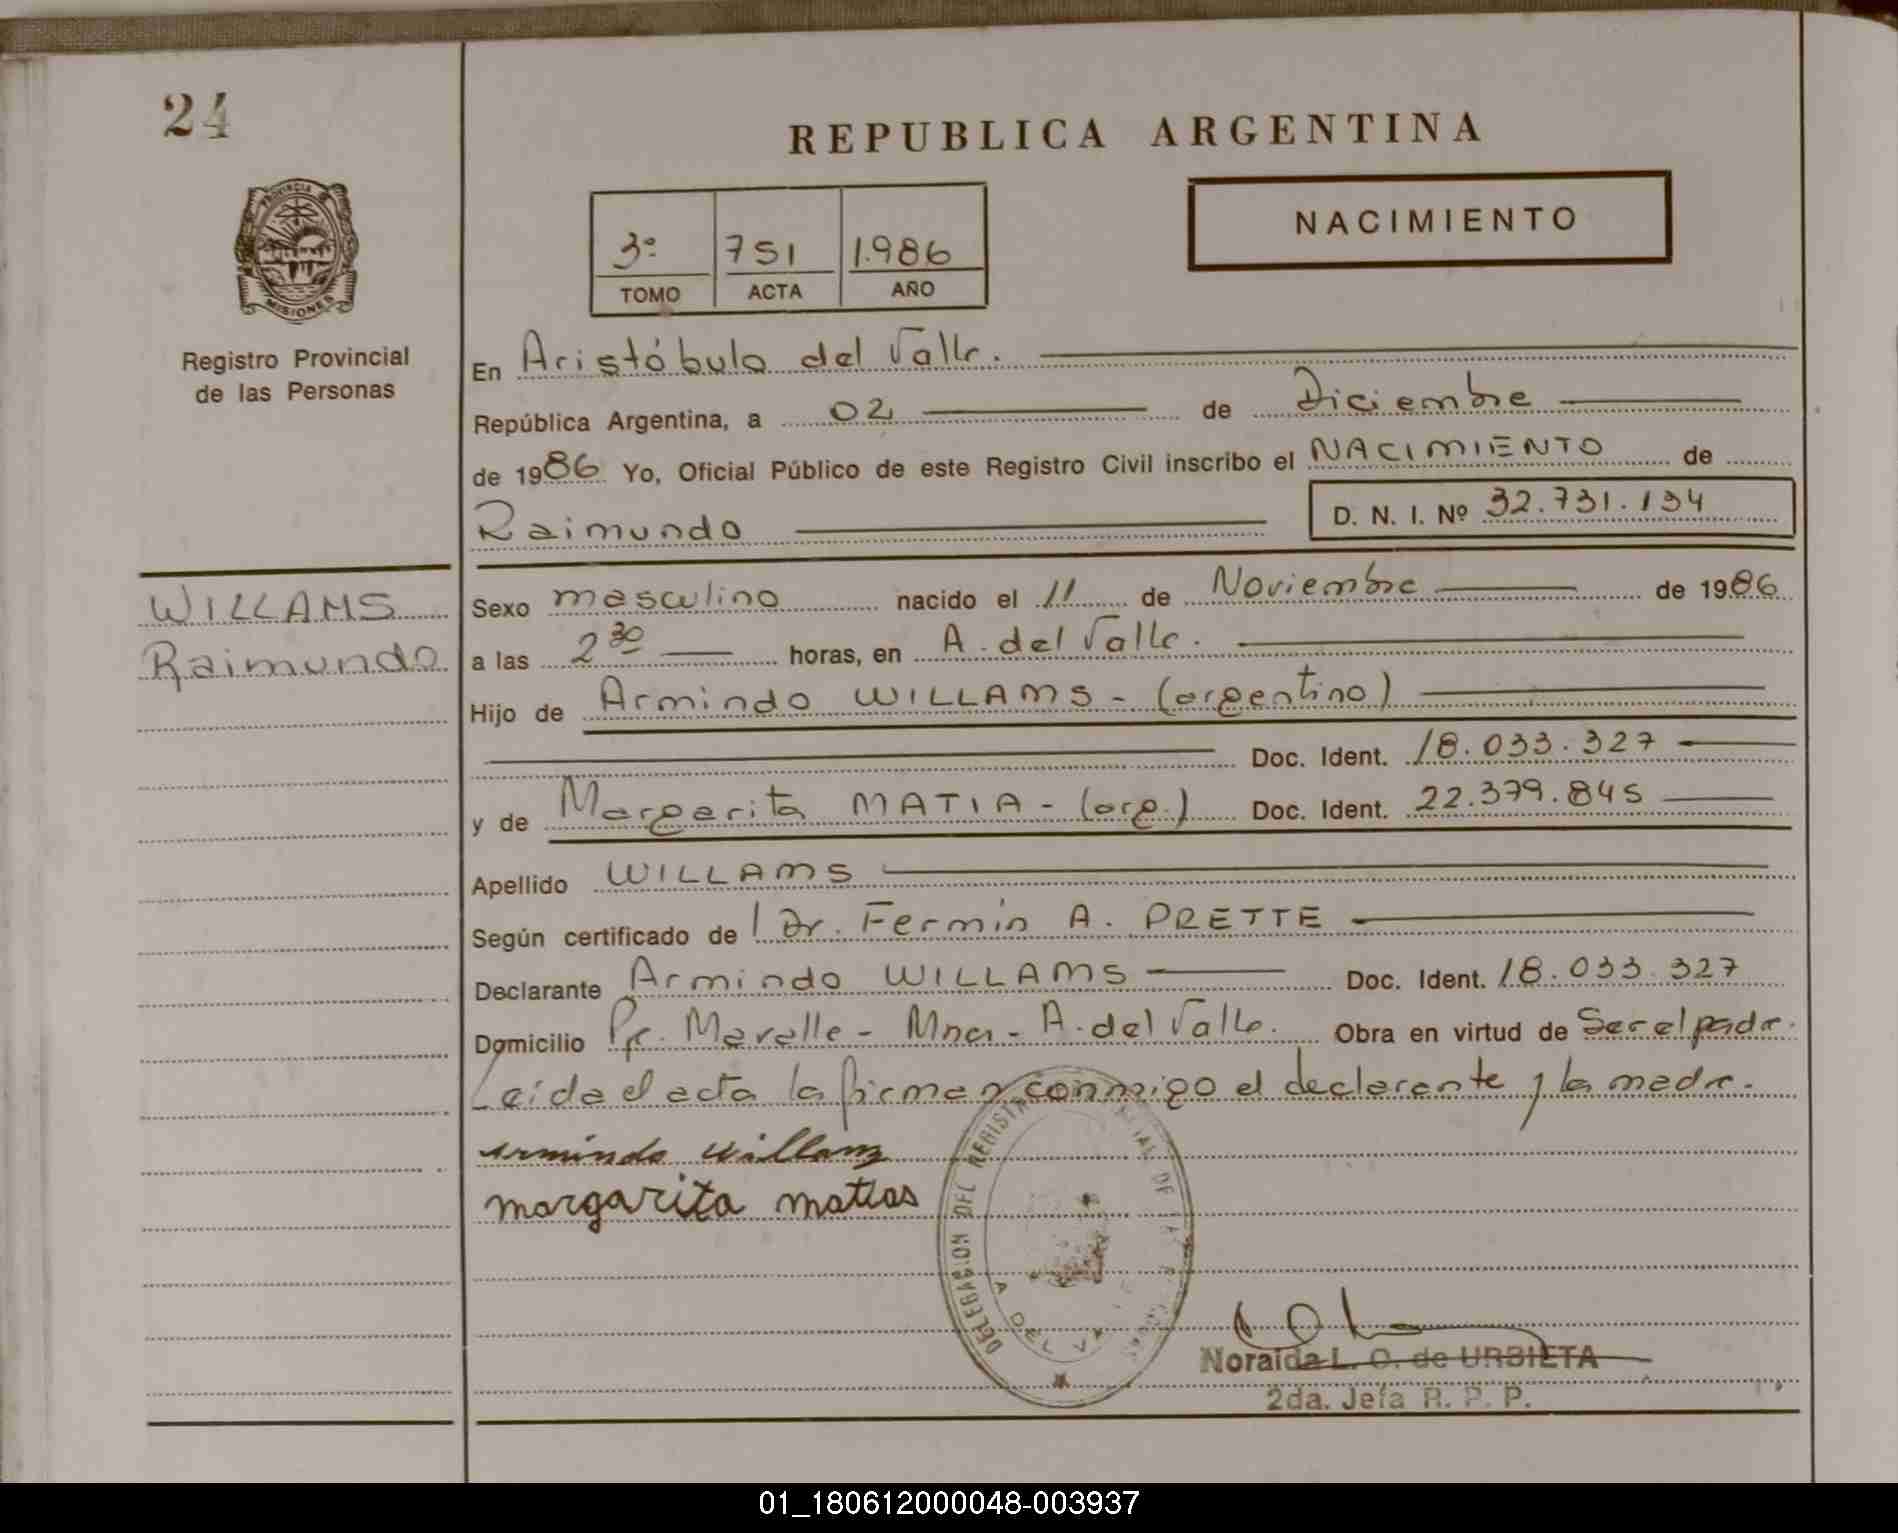 24
REPUBLICA ARGENTINA
NACIMIENTO
3º 751 1.986
TOMO ACTA AÑO
PROVINCIA DE
MISIONES
Registro Provincial
de las Personas
En Aristóbulo del Valle.
República Argentina, a 02 de Diciembre
de 1986 Yo, Oficial Público de este Registro Civil inscribo el NACIMIENTO de
Raimundo D. N. I. Nº 32.731.134
WILLAMS
Raimundo
Sexo masculino nacido el 11 de Noviembre de 1986
a las 2 30 horas, en A. del Valle.
Hijo de Armindo WILLAMS - (argentino)
Doc. Ident. 18.033.327
y de Margarita MATIA - (arg.) Doc. Ident. 22.379.845
Apellido WILLAMS
Según certificado de Dr. Fermin A. PRETTE
Declarante Armindo WILLAMS Doc. Ident. 18.033.327
Domicilio Mnes - A. del Valle. Obra en virtud de Ser el padre.
Leída el acta la firman conmigo el declarante y la madre.
armindo willams
margarita matias
DELEGACION DEL REGISTRO
A DEL V
Noraida L. O. de URBIETA
2da. Jefa R. P. P.
01_180612000048-003937